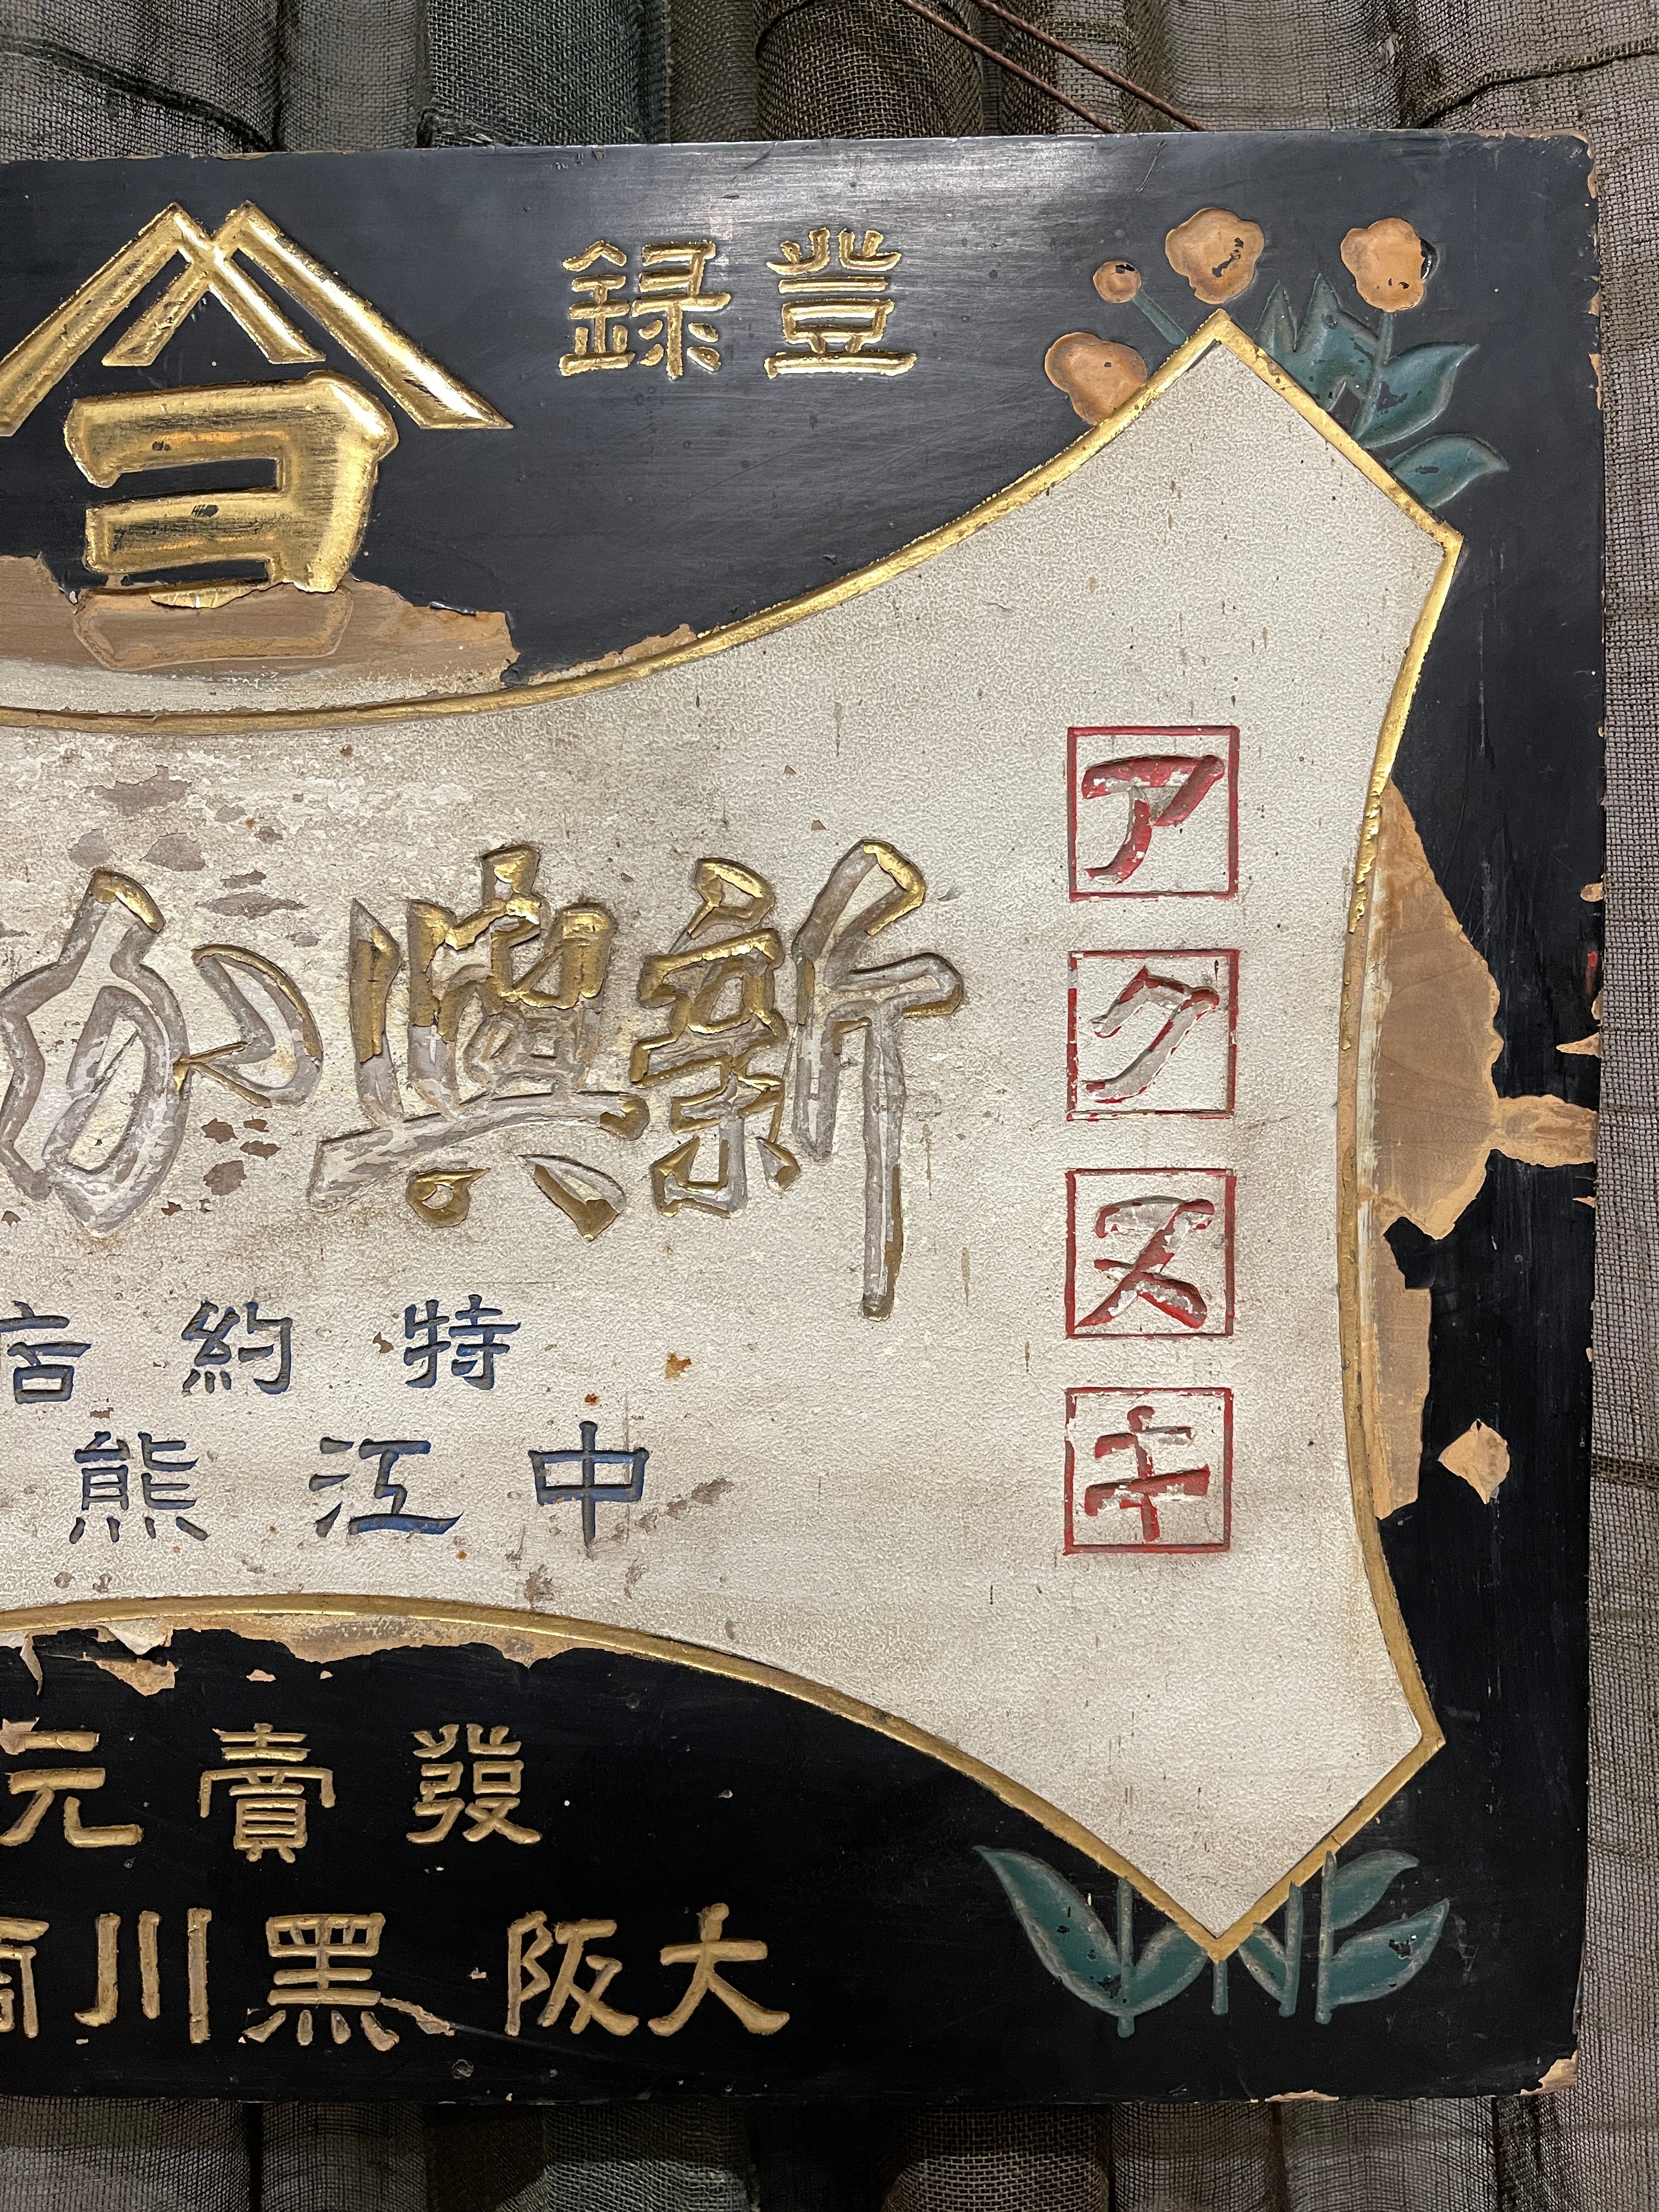 登録
ヨ
アクスキ
新
特約店
中江熊
發賣元
大阪 黑川